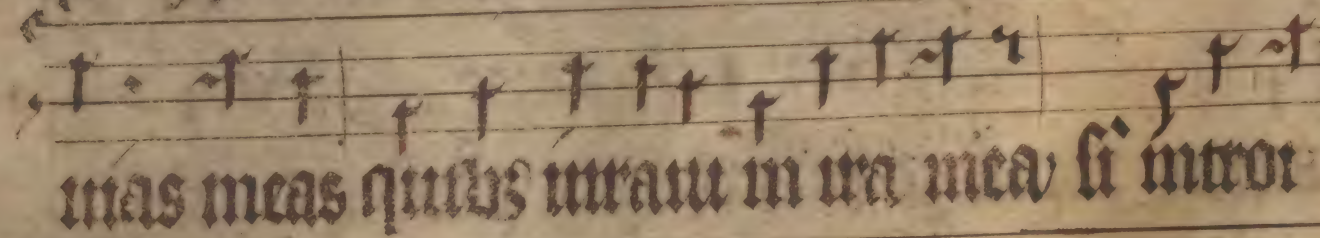 mas meas quibꝫ iuraui in ira mea si introi